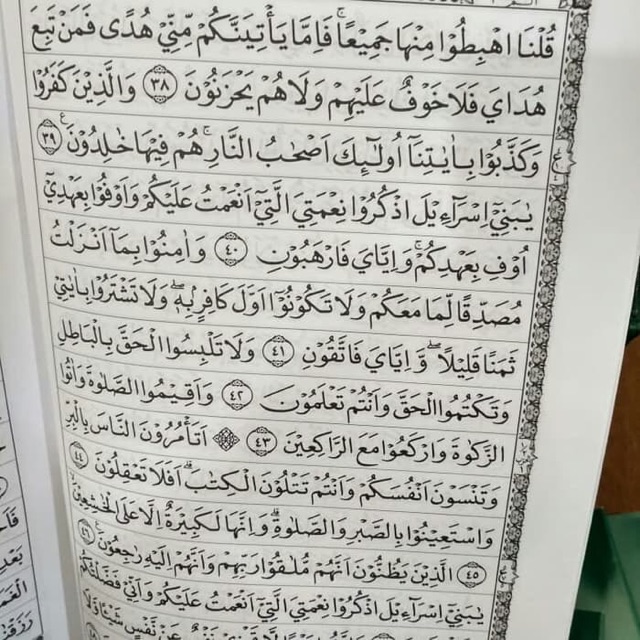 قُلْنَا اهْبِطُوْا مِنْهَا جَمِيْعًاۚ فَاِمَّا يَأْتِيَنَّكُمْ مِّنِّيْ هُدًى فَمَنْ تَبِعَ
هُدَايَ فَلَا خَوْفٌ عَلَيْهِمْ وَلَا هُمْ يَحْزَنُوْنَ ٣٨ وَالَّذِيْنَ كَفَرُوْا
وَكَذَّبُوْا بِاٰيٰتِنَآ اُولٰۤىِٕكَ اَصْحٰبُ النَّارِۚ هُمْ فِيْهَا خٰلِدُوْنَ ٣٩
يٰبَنِيْٓ اِسْرَاۤءِيْلَ اذْكُرُوْا نِعْمَتِيَ الَّتِيْٓ اَنْعَمْتُ عَلَيْكُمْ وَاَوْفُوْا بِعَهْدِيْٓ
اُوْفِ بِعَهْدِكُمْۚ وَاِيَّايَ فَارْهَبُوْنِ ٤٠ وَاٰمِنُوْا بِمَآ اَنْزَلْتُ
مُصَدِّقًا لِّمَا مَعَكُمْ وَلَا تَكُوْنُوْٓا اَوَّلَ كَافِرٍۢ بِهٖۖ وَلَا تَشْتَرُوْا بِاٰيٰتِيْ
ثَمَنًا قَلِيْلًاۖ وَّاِيَّايَ فَاتَّقُوْنِ ٤١ وَلَا تَلْبِسُوا الْحَقَّ بِالْبَاطِلِ
وَتَكْتُمُوا الْحَقَّ وَاَنْتُمْ تَعْلَمُوْنَ ٤٢ وَاَقِيْمُوا الصَّلٰوةَ وَاٰتُوا
الزَّكٰوةَ وَارْكَعُوْا مَعَ الرَّاكِعِيْنَ ٤٣ ۞ اَتَأْمُرُوْنَ النَّاسَ بِالْبِرِّ
وَتَنْسَوْنَ اَنْفُسَكُمْ وَاَنْتُمْ تَتْلُوْنَ الْكِتٰبَۗ اَفَلَا تَعْقِلُوْنَ ٤٤
وَاسْتَعِيْنُوْا بِالصَّبْرِ وَالصَّلٰوةِۗ وَاِنَّهَا لَكَبِيْرَةٌ اِلَّا عَلَى الْخٰشِعِيْنَۙ
٤٥ الَّذِيْنَ يَظُنُّوْنَ اَنَّهُمْ مُّلٰقُوْا رَبِّهِمْ وَاَنَّهُمْ اِلَيْهِ رٰجِعُوْنَ ٤٦
يٰبَنِيْٓ اِسْرَاۤءِيْلَ اذْكُرُوْا نِعْمَتِيَ الَّتِيْٓ اَنْعَمْتُ عَلَيْكُمْ وَاَنِّيْ فَضَّلْتُكُمْ
نَفْسٌ عَنْ نَّفْسٍ شَيْـًٔا وَّلَا